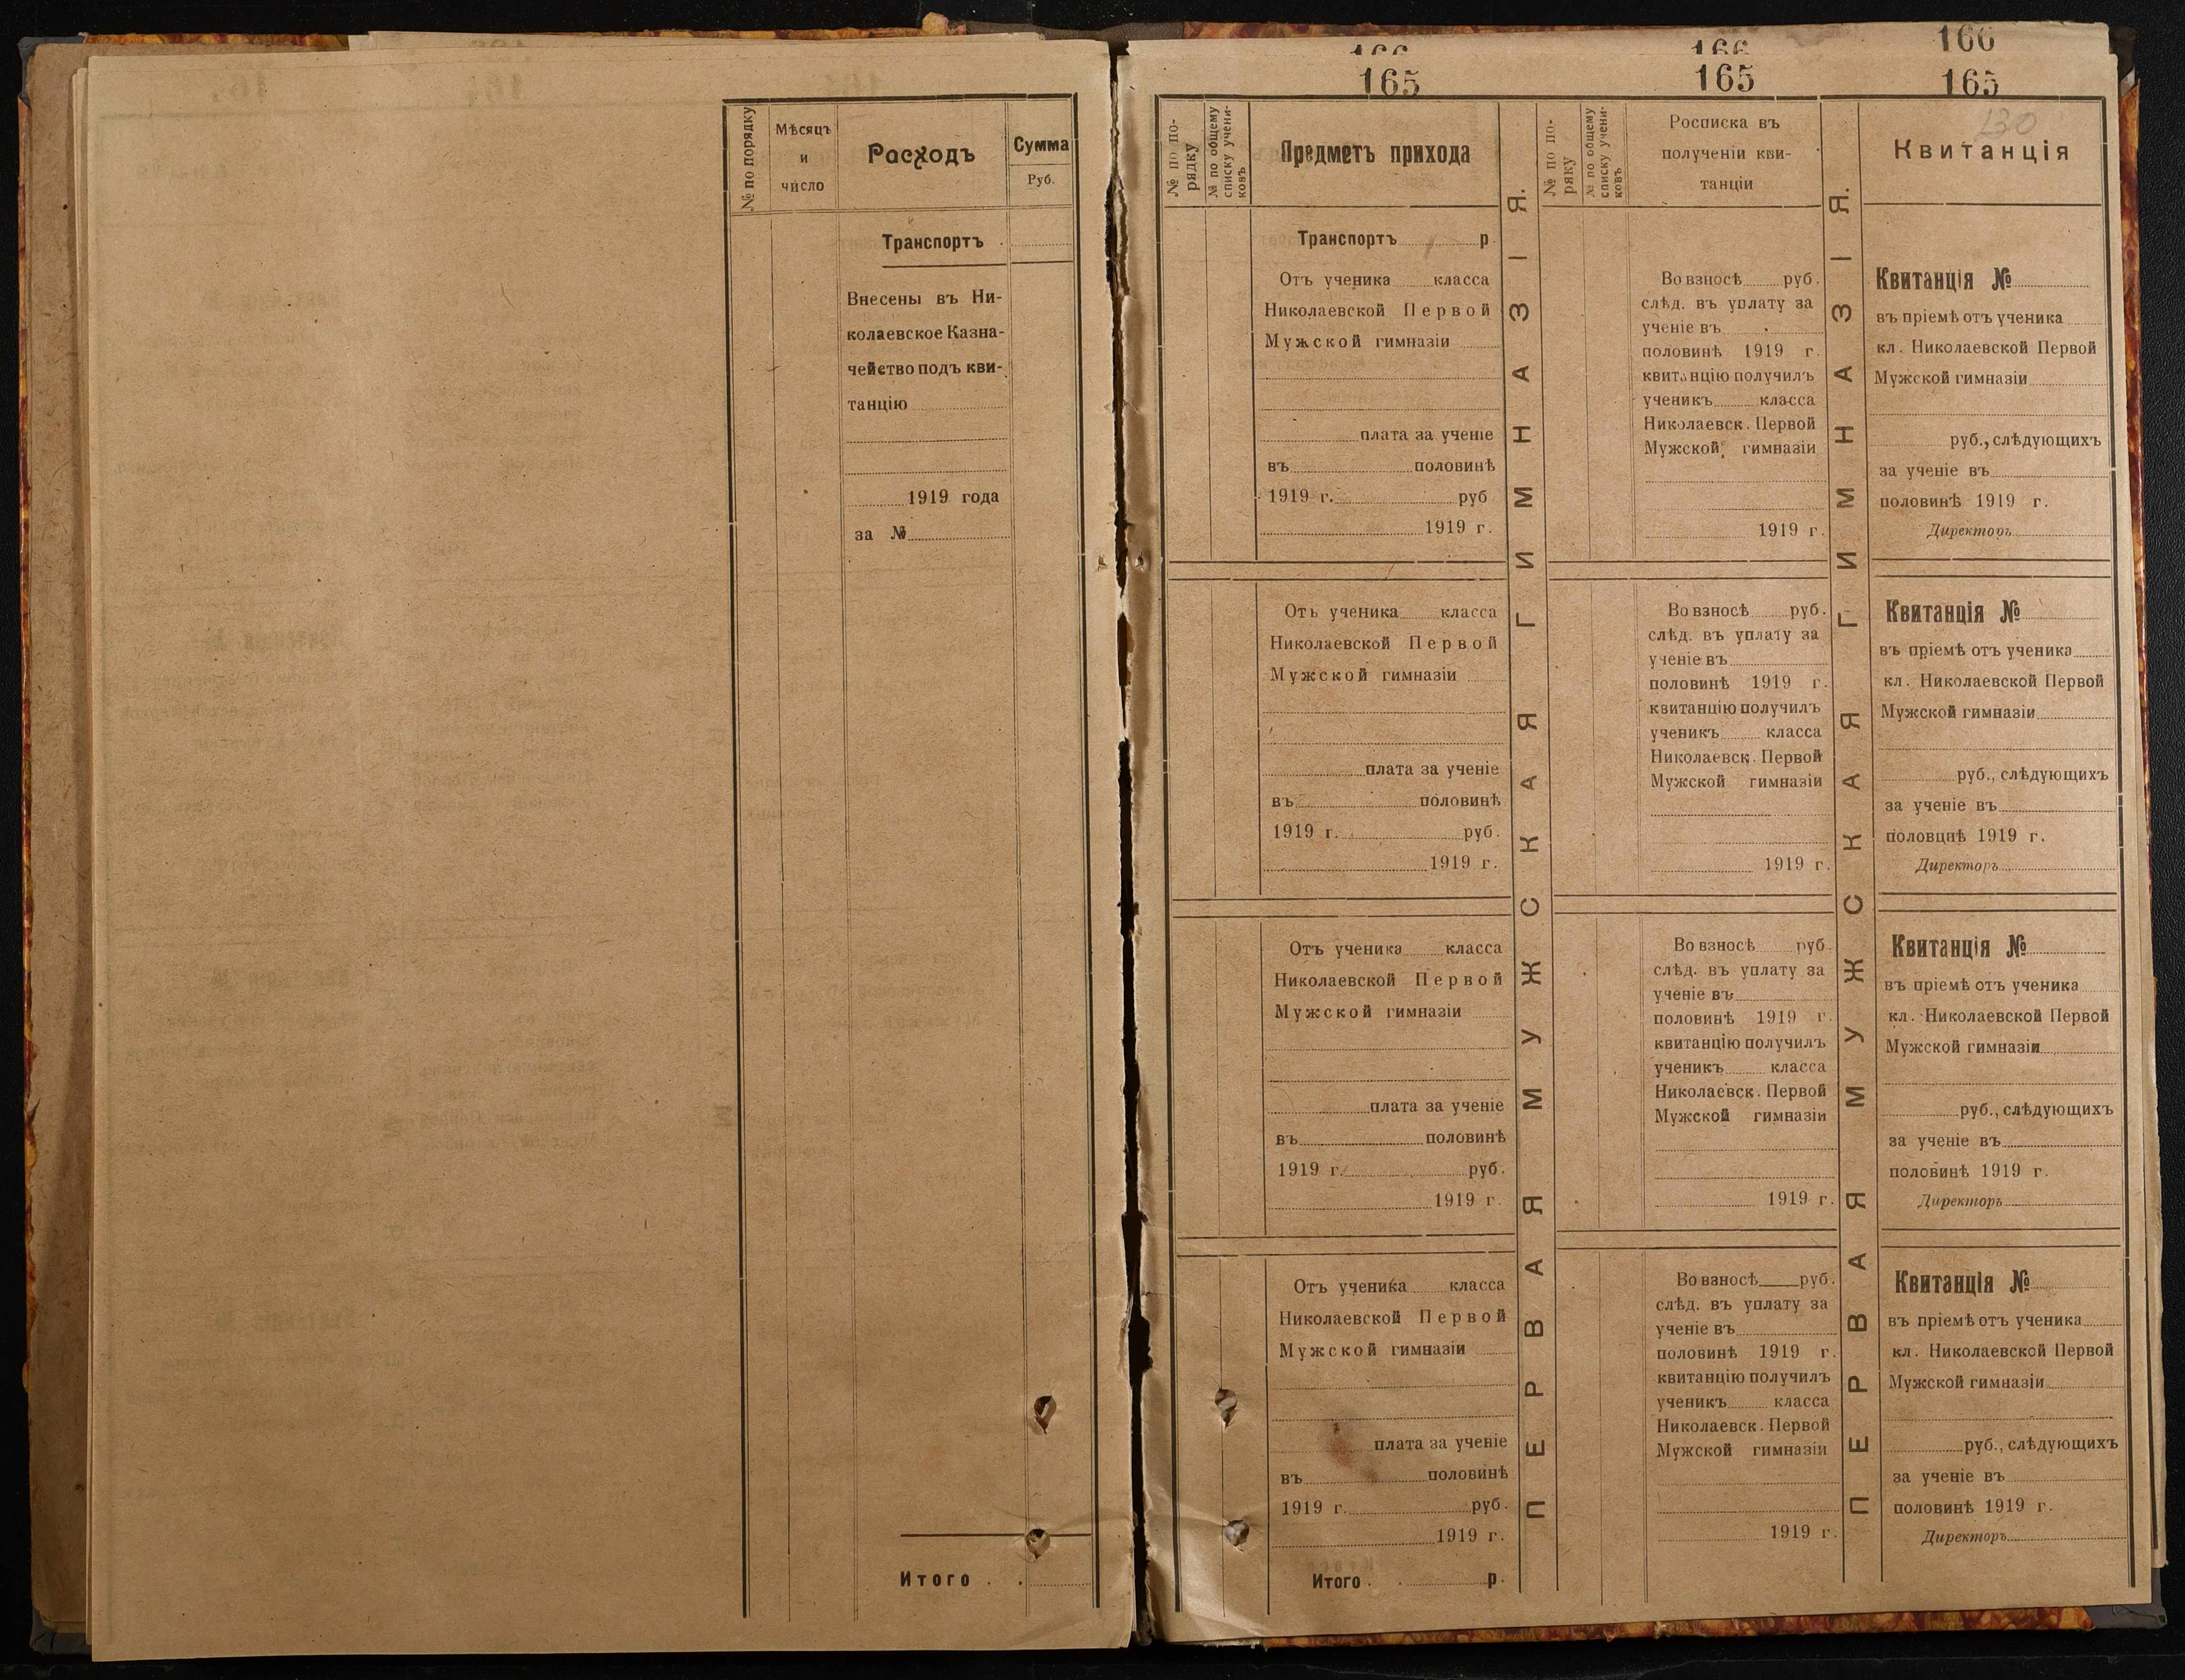 № по порядку
Мѣсяцъ
и
число
Расходъ
Сумма
Руб.
Транспортъ
Внесены въ Ни-
колаевское Казна-
чейство подъ кви-
танцію
1919 года
за №
Итого
166
165
№ по по-
рядку
№ по общему
списку учени-
ковъ
Предметъ прихода
Транспортъ р.
Отъ ученика класса
Николаевской Первой
Мужской гимназіи
плата за ученіе
въ половинѣ
1919 г. руб
1919 г.
Отъ ученика класса
Николаевской Первой
Мужской гимназіи
плата за ученіе
въ половинѣ
1919 г. руб.
1919 г.
Отъ ученика класса
Николаевской Первой
Мужской гимназіи
плата за ученіе
въ половинѣ
1919 г. руб.
1919 г.
Отъ ученика класса
Николаевской Первой
Мужской гимназіи
плата за ученіе
въ половинѣ
1919 г. руб.
1919 г.
Итого р.
ПЕРВАЯ МУЖСКАЯ ГИМНАЗІЯ.
166
165
№ по по-
ряку
№ по общему
списку учени-
ковъ
Росписка въ
полученіи кви-
танціи
Во взносѣ руб.
слѣд. въ уплату за
ученіе въ
половинѣ 1919 г.
квитанцію получилъ
ученикъ класса
Николаевск. Первой
Мужской гимназіи
1919 г.
Во взносѣ руб.
слѣд. въ уплату за
ученіе въ
половинѣ 1919 г.
квитанцію получилъ
ученикъ класса
Николаевск. Первой
Мужской гимназіи
1919 г.
Во взносѣ руб.
слѣд. въ уплату за
ученіе въ
половинѣ 1919 г.
квитанцію получилъ
ученикъ класса
Николаевск. Первой
Мужской гимназіи
1919 г.
Во взносѣ руб.
слѣд. въ уплату за
ученіе въ
половинѣ 1919 г.
квитанцію получилъ
ученикъ класса
Николаевск. Первой
Мужской гимназіи
1919 г.
ПЕРВАЯ МУЖСКАЯ ГИМНАЗІЯ.
166
165
130
Квитанція
Квитанція №
въ пріемѣ отъ ученика
кл. Николаевской Первой
Мужской гимназіи
руб., слѣдующихъ
за ученіе въ
половинѣ 1919 г.
Директоръ
Квитанція №
въ пріемѣ отъ ученика
кл. Николаевской Первой
Мужской гимназіи
руб., слѣдующихъ
за ученіе въ
половцнѣ 1919 г.
Директоръ
Квитанція №
въ пріемѣ отъ ученика
кл. Николаевской Первой
Мужской гимназіи
руб., слѣдующихъ
за ученіе въ
половинѣ 1919 г.
Директоръ
Квитанція №
въ пріемѣ отъ ученика
кл. Николаевской Первой
Мужской гимназіи
руб., слѣдующихъ
за ученіе въ
половинѣ 1919 г.
Директоръ